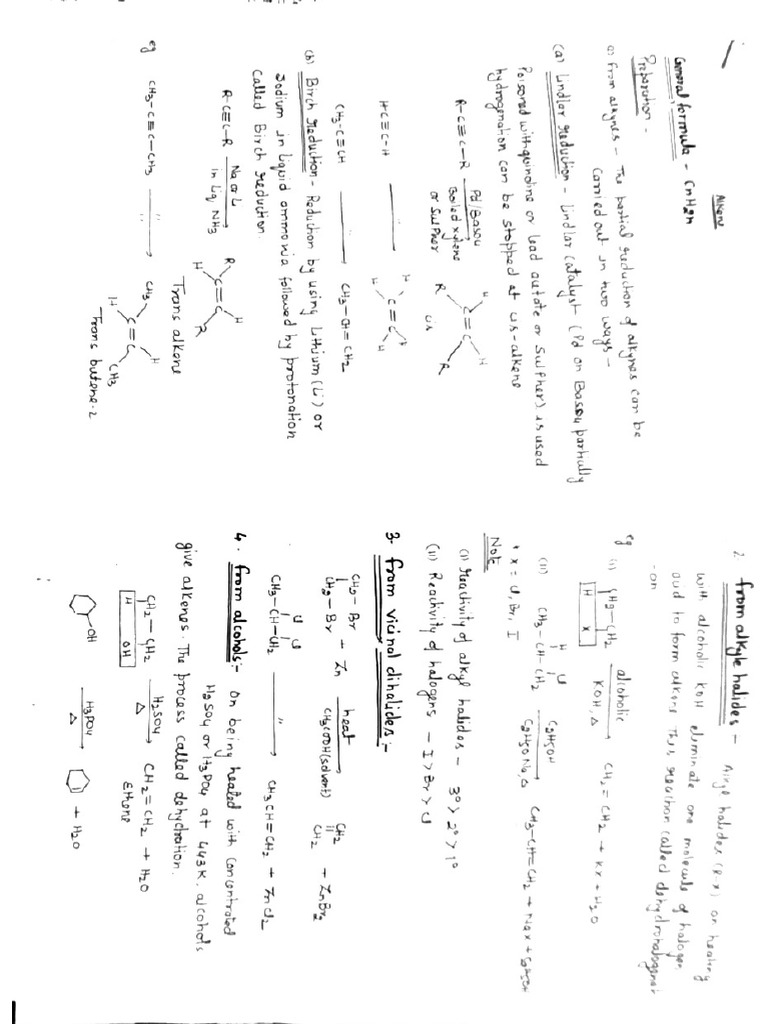 Alkene
General formula - CnH2n
Preparation -
(1) From alkynes - The partial reduction of alkynes can be
carried out in two ways -
(a) Lindlar reduction - Lindlar catalyst (Pd on BaSO4 partially
Poisoned with quinoline or lead acetate or Sulpher) is used
hydrogenation can be stopped at cis-alkene
R-C≡C-R Pd/BaSO4
Boiled xylene
or Sulpher
R H C=C H R
cis
H-C≡C-H → H H C=C H H
CH3-C≡CH → CH3-CH=CH2
(b) Birch reduction - Reduction by using Lithium (Li) or
Sodium in liquid ammonia followed by protonation
called Birch reduction.
R-C≡C-R Na or Li
in Liq. NH3
R H C=C H R
Trans alkene
eg CH3-C≡C-CH3 " → CH3 H C=C H CH3
Trans butene-2
2. from alkyle halides - Alkyl halides (R-X) on heating
with alcoholic KOH eleminate one molecule of halogen
acid to form alkene. This reaction called dehydrohalogenat
-on
eg (i) CH2-CH2 alcoholic
H X KOH, Δ
→ CH2=CH2 + KX + H2O
(ii) CH3-CH-CH2 C2H5OH
H Cl C2H5ONa, Δ
→ CH3-CH=CH2 + NaX + C2H5OH
* X = Cl, Br, I
Note
(i) reactivity of alkyl halides - 3° > 2° > 1°
(ii) Reactivity of halogens - I > Br > Cl
3- from vicinal dihalides:-
CH2-Br
CH2-Br + Zn heat
CH3COOH (solvent)
CH2
CH2 + ZnBr2
Cl Cl
CH3-CH-CH2 " → CH3CH=CH2 + ZnCl2
4. from alcohols:- On being heated with concentrated
H2SO4 or H3PO4 at 443K. alcohols
give alkenes. The process called dehydration.
CH2-CH2 H2SO4
H OH Δ
→ CH2=CH2 + H2O
Ethene
OH H3PO4
Δ
→ + H2O